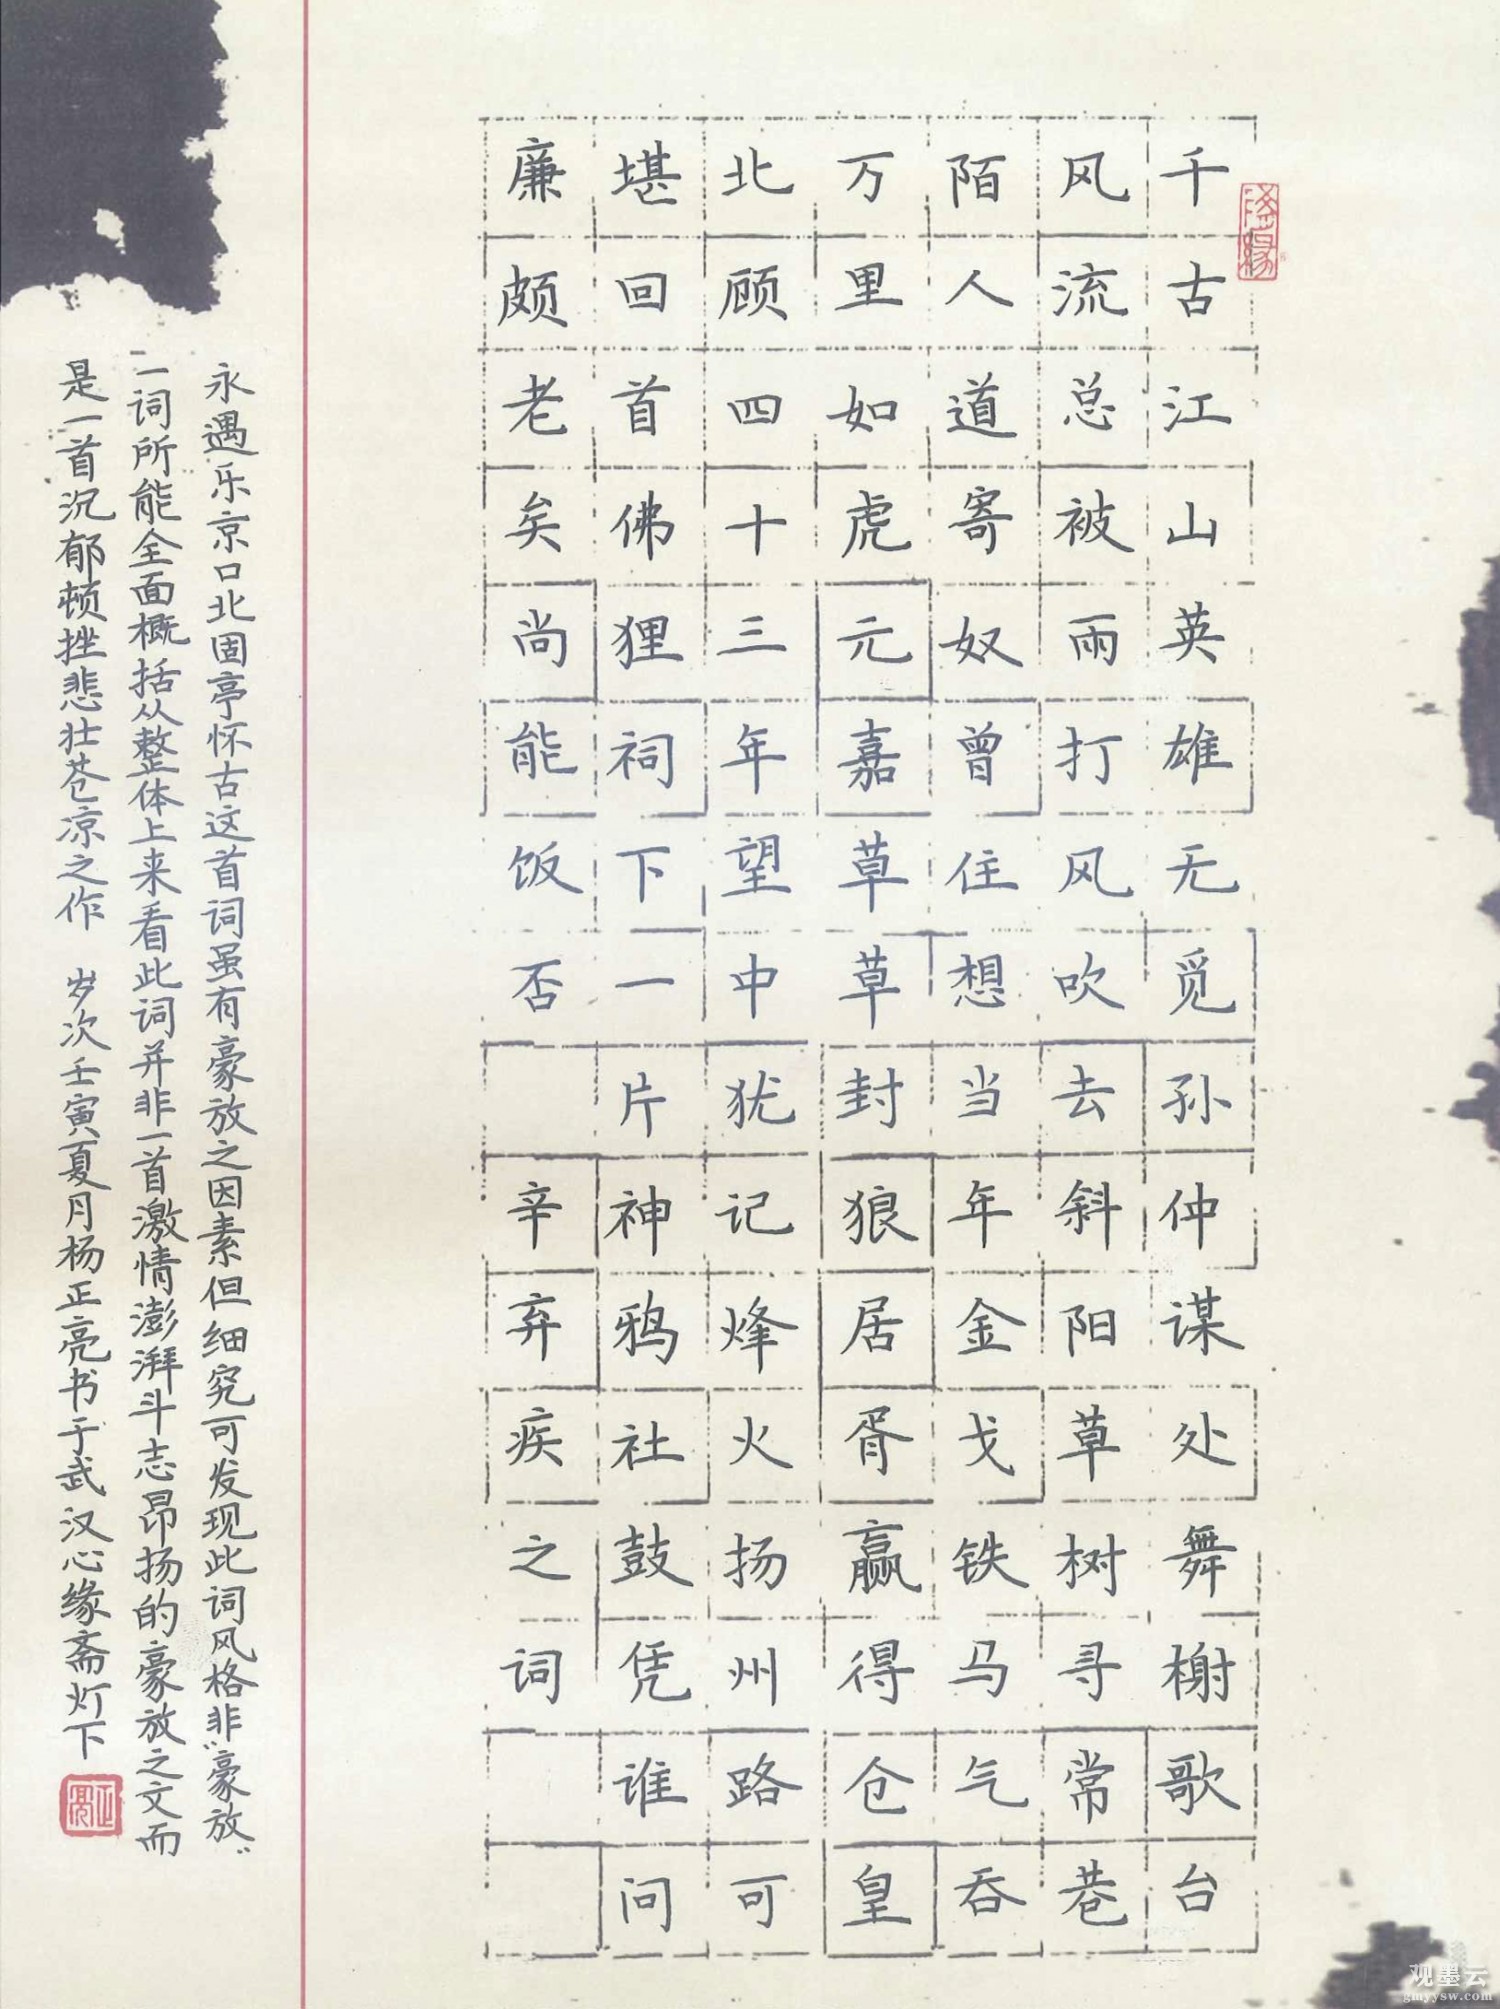 千古江山英雄无觅孙仲谋处舞榭歌台
风流总被雨打风吹去斜阳草树寻常巷
陌人道寄奴曾住想当年金戈铁马气吞
万里如虎元嘉草草封狼居胥赢得仓皇
北顾四十三年望中犹记烽火扬州路可
堪回首佛狸祠下一片神鸦社鼓凭谁问
廉颇老矣尚能饭否 辛弃疾之词
永遇乐京口北固亭怀古这首词虽有豪放之因素但细究可发现此词风格非“豪放”
一词所能全面概括从整体上来看此词并非一首激情澎湃斗志昂扬的豪放之文而
是一首沉郁顿挫悲壮苍凉之作 岁次壬寅夏月杨正亮书于武汉心缘斋灯下
正亮
观墨云
gmyysw.com